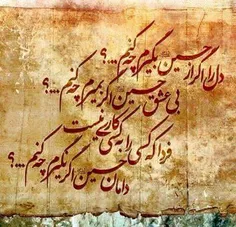 دل را اگر از حسین بگیرم چه کنم...؟
بی عشق حسین اگر بمیرم چه کنم...؟
فردا که کسی را به کسی کاری نیست
دامان حسین اگر نگیرم چه کنم...؟